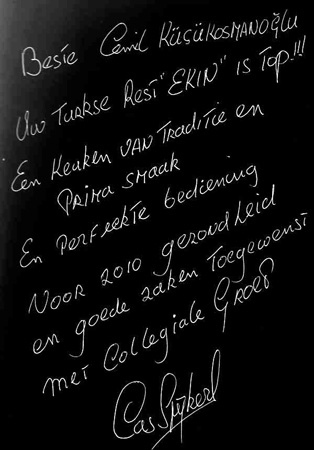 Beste Cemil KüçüKosmanoğlu
Uw Turkse Rest "EKIN" is Top!!!
Een Keuken van Traditie en
Prima smaak
En Perfekte bediening
Voor 2010 gezondheid
en goede zaken Toegewenst
met Collegiale Groep
Cas Spijkers